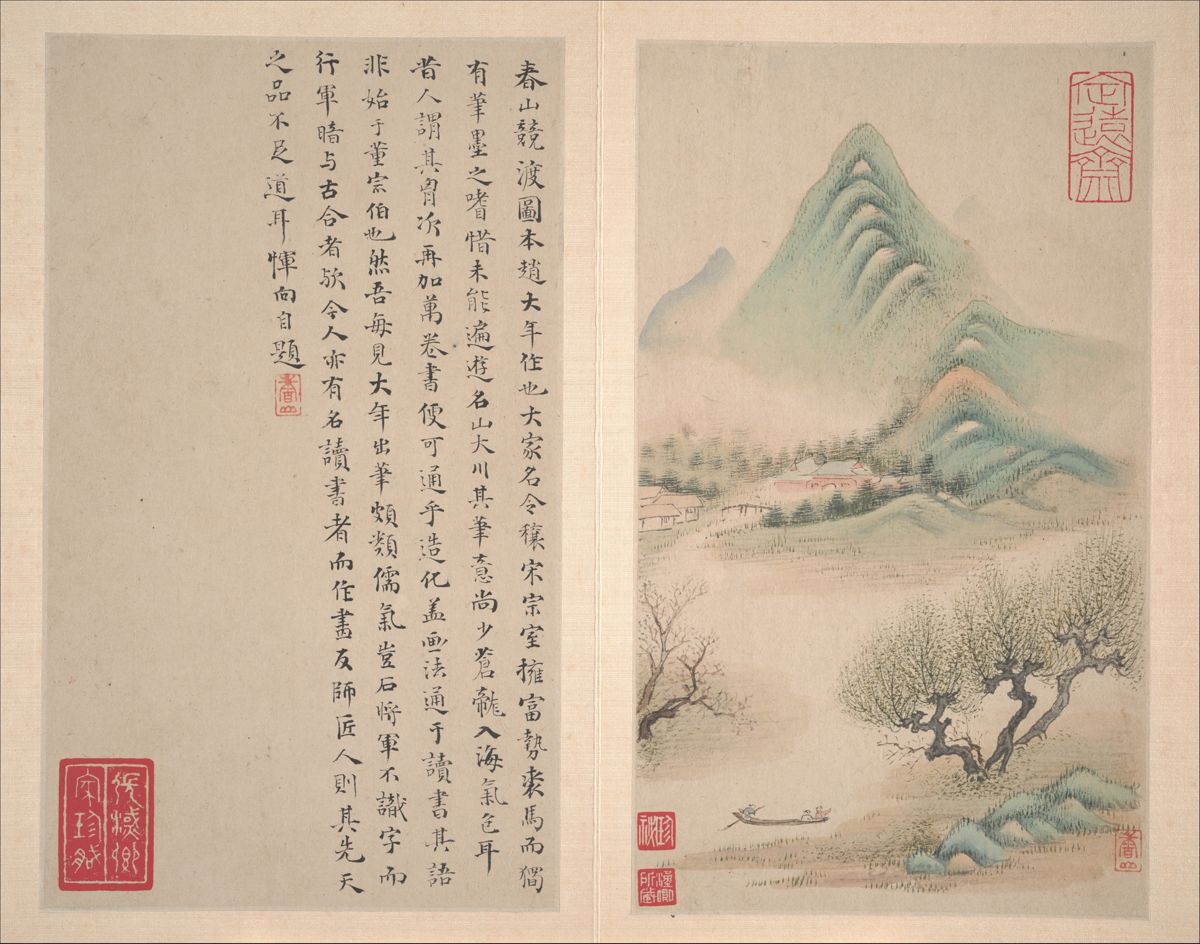 春山競渡圖本趙大年作也大家名令穰宋宗室擁富勢裘馬而獨
有筆墨之嗜惜未能遍遊名山大川其筆意尚少蒼龍入海氣色耳
昔人謂其胷次再加萬卷書便可通乎造化盖画法通于讀書其語
非始于董宗伯也然吾每見大年出筆頗類儒氣豈石將軍不識字而
行軍暗与古合者欤今人亦有名讀書者而作畫反師匠人則其先天
之品不足道耳惲向自題
香山
張蔥卿
家珍
定遠齋
香山
珍秘
漢卿
所藏